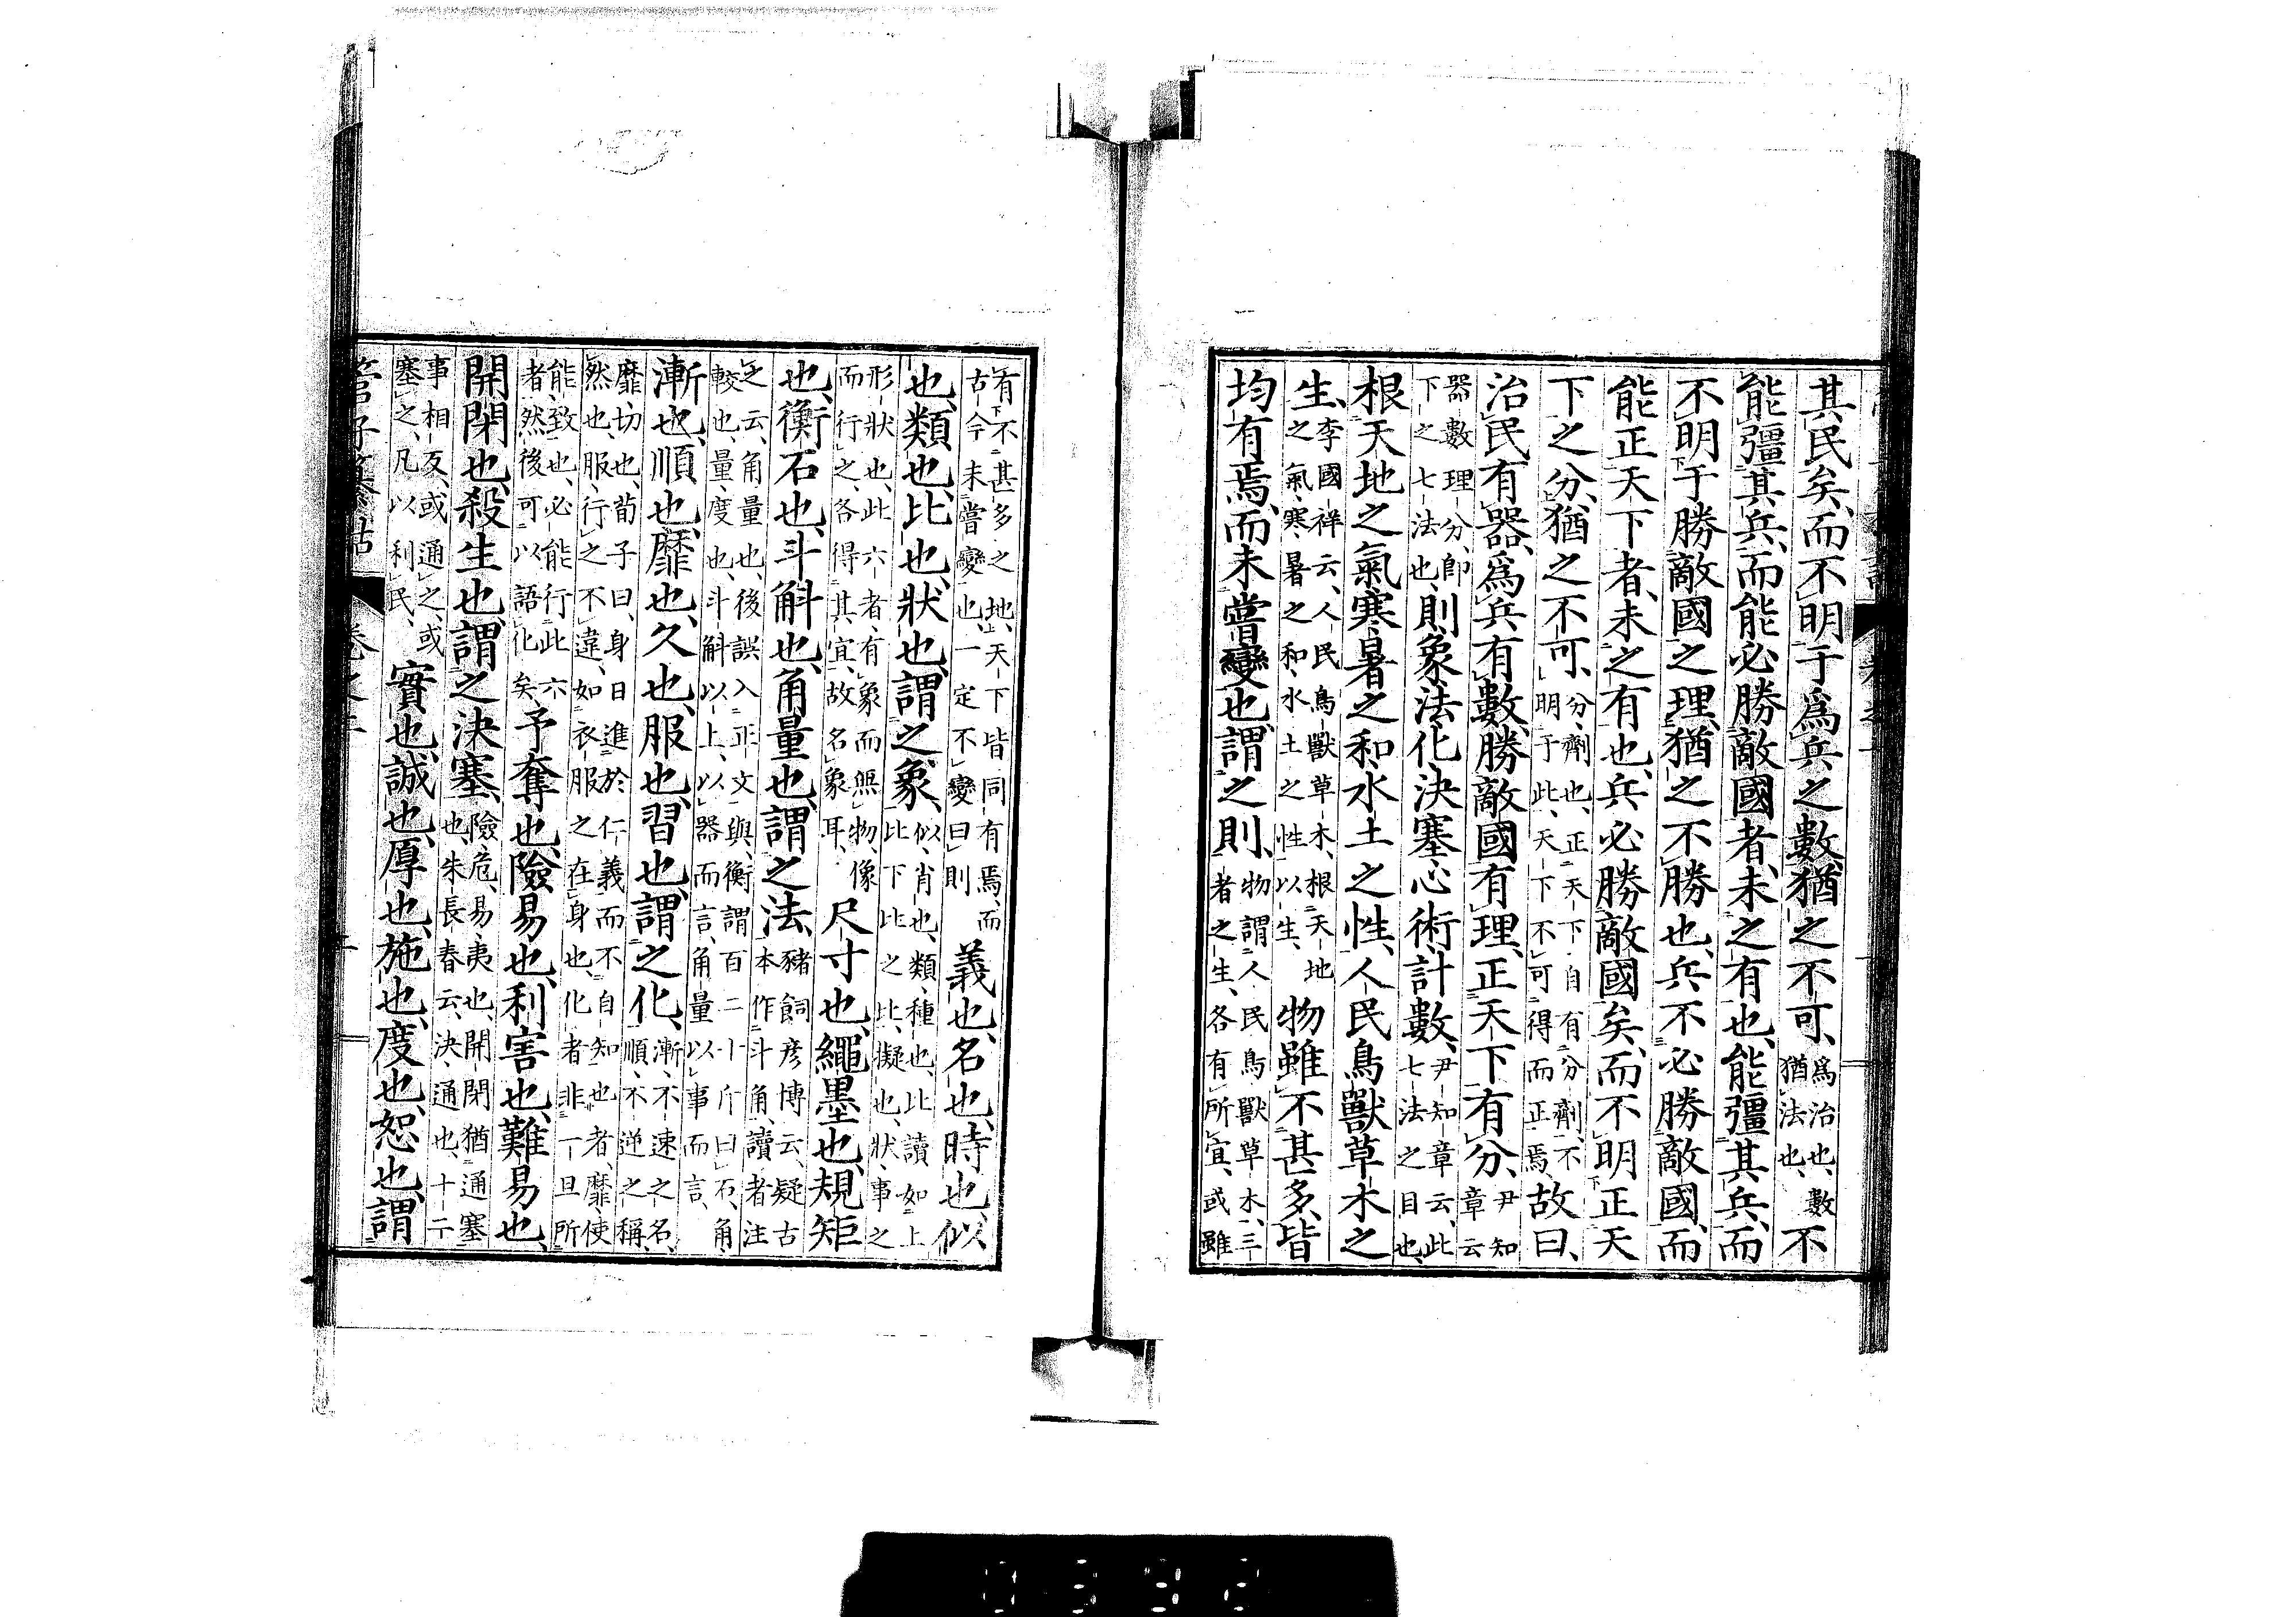 其民矣、而不明于爲兵之數、猶之不可、爲治也、數猶法也、不
能彊其兵、而能必勝敵國者、未之有也、能彊其兵、而
不明于勝敵國之理、猶之不勝也、兵不必勝敵國、而
能正天下者、未之有也、兵必勝敵國矣、而不明正天
下之分、猶之不可、分、劑也、正天下、自有分劑、不明于此、天下不可得而正焉、故曰、
治民有器、爲兵有數、勝敵國有理、正天下有分、尹知章云
器數理分、卽下之七法也、則、象、法、化、決塞、心術、計數、尹知章云、此七法之目也、
根天地之氣、寒暑之和、水土之性、人民鳥獸草木之
生、李國祥云、人民鳥獸草木、根天地之氣、寒暑之和、水土之性以生、物雖不甚多、皆
均有焉、而未嘗變也、謂之則、物謂人民鳥獸草木、三者之生、各有所宜、或雖
有不甚多之地、天下皆同有焉、而古今未嘗變也、一定不變曰則義也、名也、時也、似
也、類也、比也、狀也、謂之象、似、肖也、類、種也、比讀如上比下比之比、擬也、狀、事之
形狀也、此六者、有象而無物、像而行之、各得其宜、故名象耳、尺寸也、繩墨也、規矩
也、衡石也、斗斛也、角量也、謂之法、豬飼彥博云、疑古本作斗角、讀者注
之云、角量也、後誤入正文與、衡謂百二十斤曰石、角、較也、量、度也、斗斛以上、以器而言、角量以事而言、
漸也、順也、靡也、久也、服也、習也、謂之化、漸、不速之名、順、不逆之稱、
靡切也、荀子曰、身日進於仁義而不自知也者、靡使然也、服、行之不違、如衣服之在身也、化者非一旦所
能致也、必能行此六者、然後可以語化矣、予奪也、險易也、利害也、難易也、
開閉也、殺生也、謂之決塞、險、危、易、夷也、開閉猶通塞也、朱長春云、決、通也、十二
事相反、或通之、或塞之、凡以利民、實也、誠也、厚也、施也、度也、恕也、謂